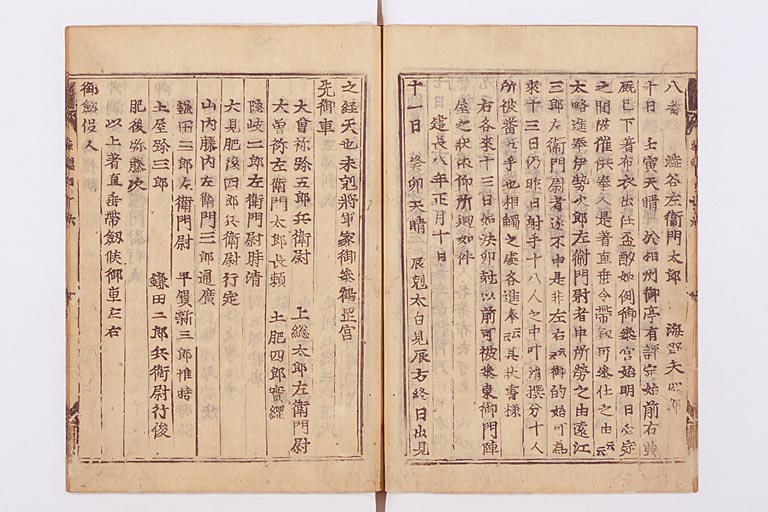 八番 澁谷左衛門太郎 海野矢四郎
十日 壬寅天晴 於相州御亭有評定始前右典
厩已下著布衣出仕盃酌如例御參宮始明日必定
之間被催供奉人是著直垂令帶釼可參仕之由云々
太略進奉伊勢次郎左衛門尉者申所勞之由遠江
三郎左衛門尉者遂不申是非左右云々御的始可為
來十三日仍昨日射手十八人之中叶清撰分十人
所被番五手也相觸之處各進奉云々其状書様
右各來十三日如法卯剋以前可被參東御門陣
屋之状依仰所廻如件
建長八年正月十日
十一日 癸卯天晴 辰剋太白見辰方終日出見
之経天也未剋將軍家御參鶴岡宮
先御車
大曾祢弥五郎兵衛尉 上総太郎左衛門尉
大曾祢左衛門太郎長頼 土肥四郎實經
隠岐二郎左衛門尉時清
大見肥後四郎兵衛尉行定
山内藤内左衛門三郎通廣
鎌田三郎左衛門尉 平賀新三郎惟時
土屋弥三郎 鎌田二郎兵衛尉行俊
肥後弥藤次
以上著直垂帶釼候御車左右
御釼役人